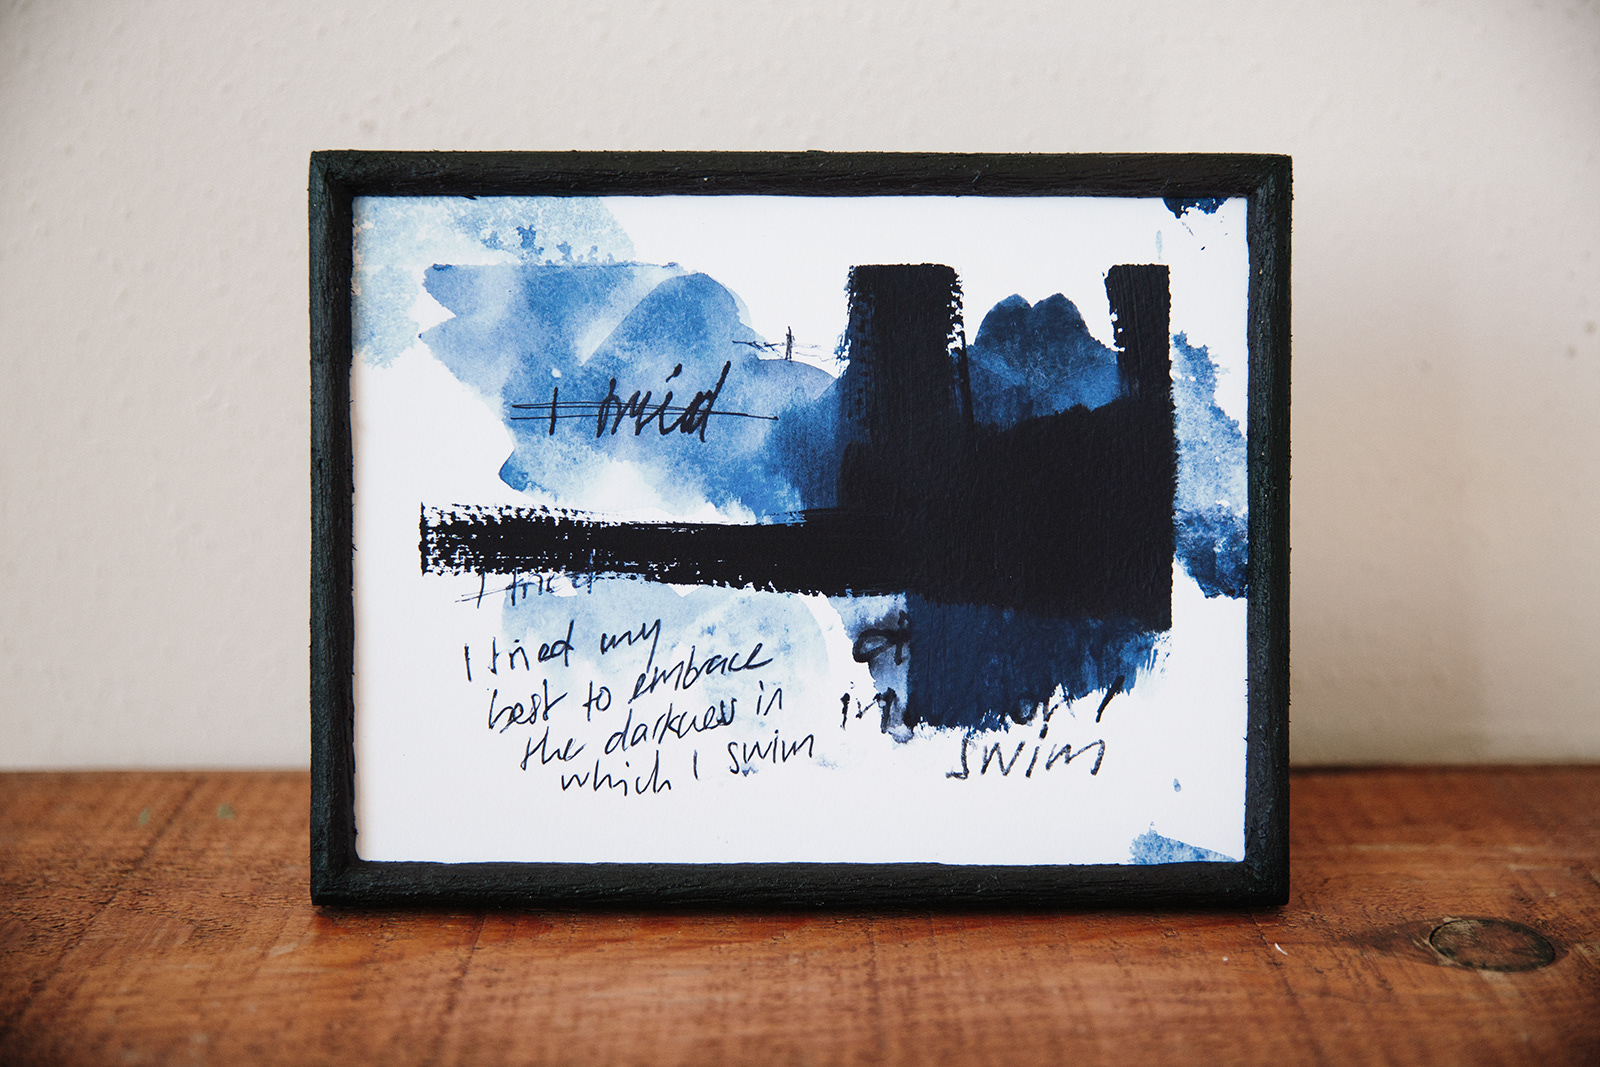 I tried
I tried
I tried my
best to embrace
the darkness in
which I swim
swim